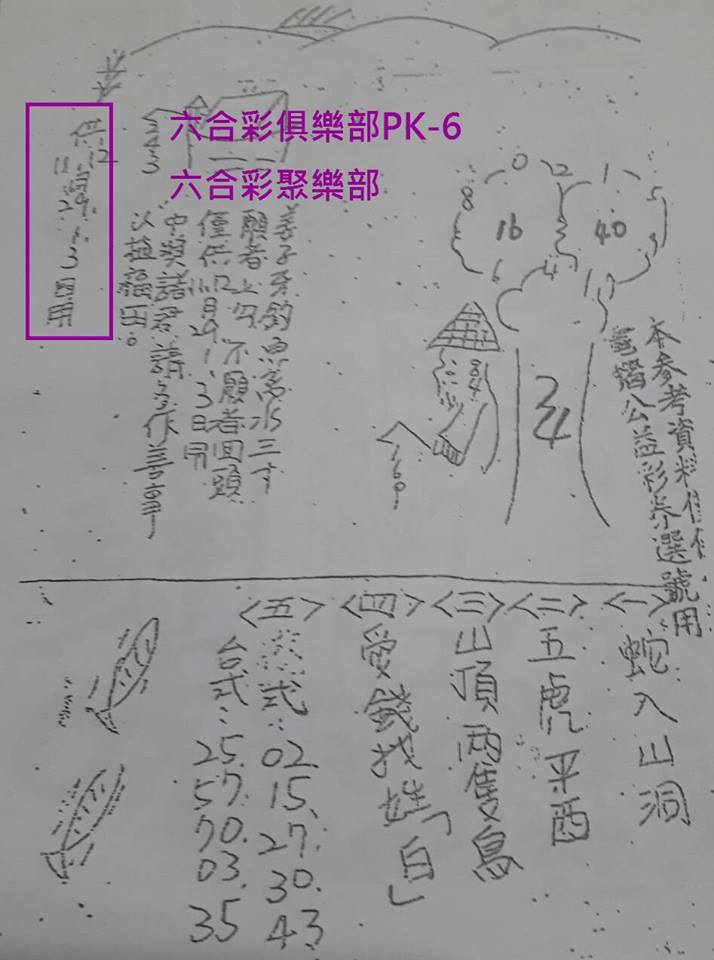 六合彩俱樂部PK-6
六合彩聚樂部
243
0 2 1 5
8 16 40
6 4 1
34
160
本參考資料僅供
公益彩券選號用
姜子牙釣魚離水三寸
願者上勾不願者回頭
僅供12月29、1、3日用
中獎諸君請多作善事
以益福田。
<一>
蛇入山洞
<二>
五虎平西
<三>
山頂兩隻鳥
<四>
愛錢找姓「白」
<五>
式：02.15、27.30.43
台式：25.57.70.03.35